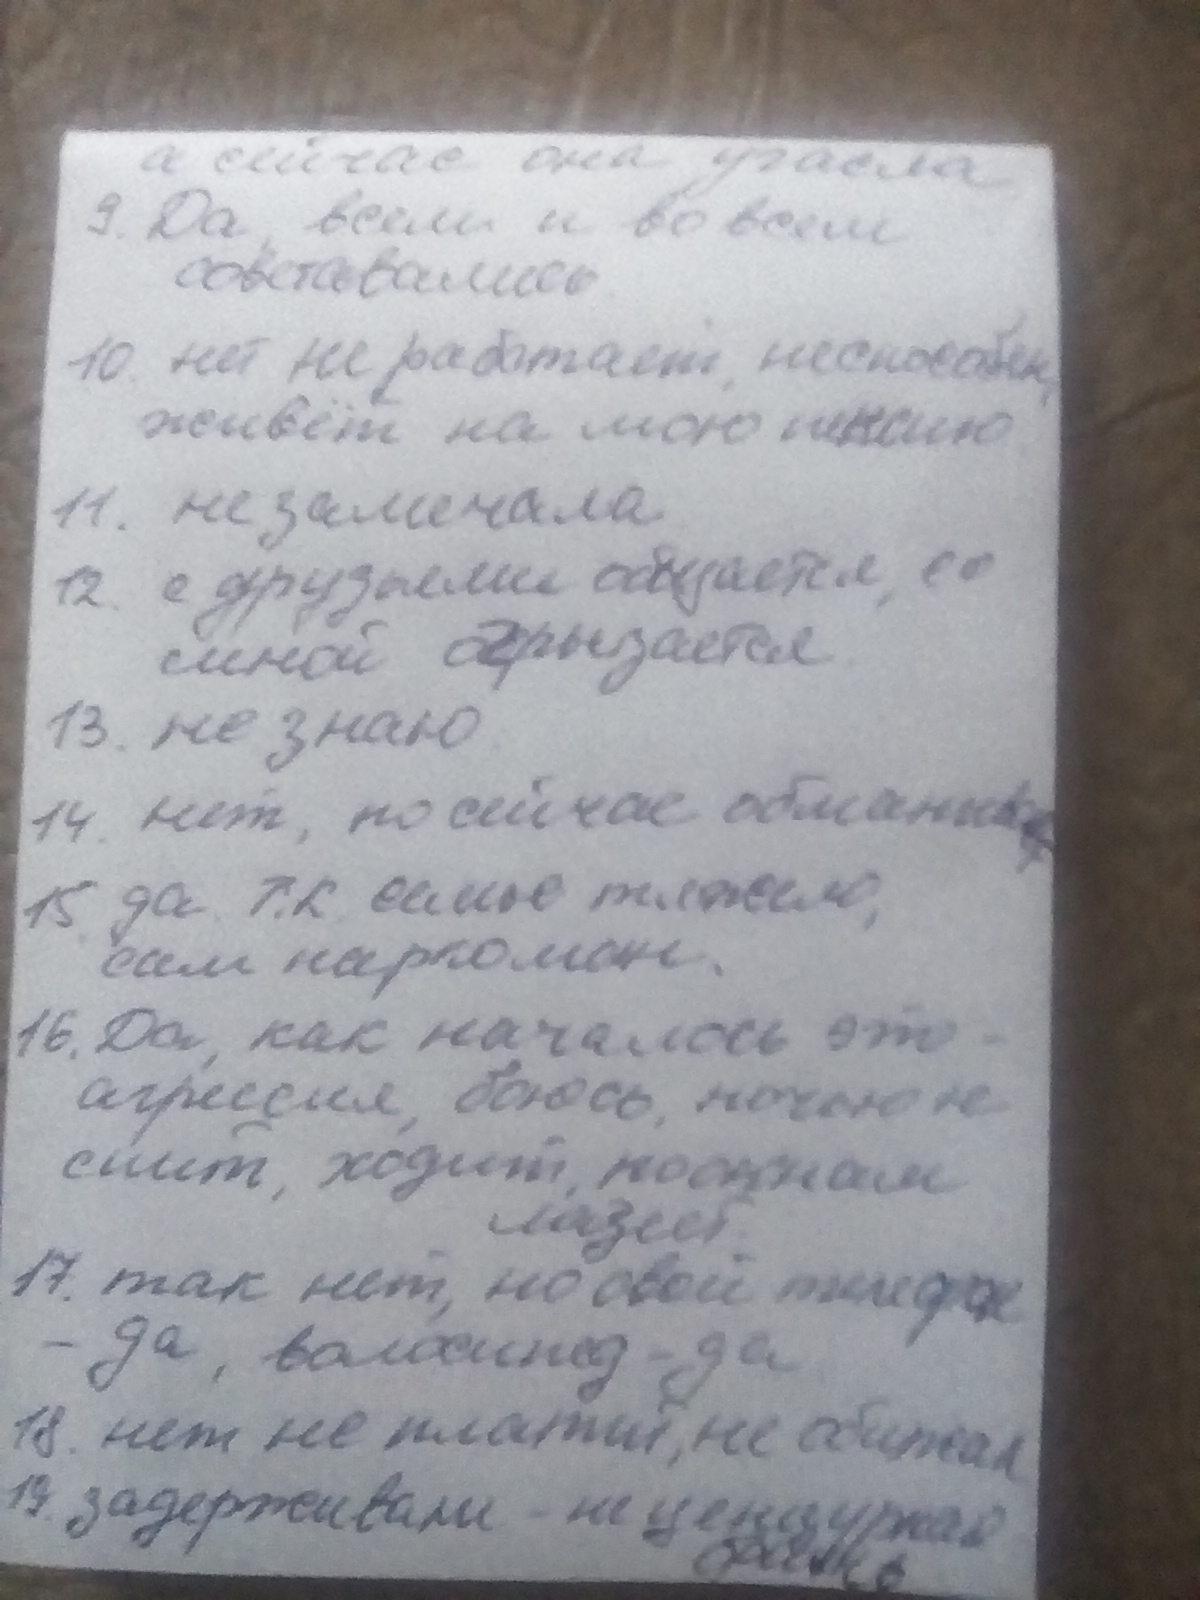 а сейчас она угасла
9. Да, всем и во всем
советовались.
10. нет не работает, неспособен,
живёт на мою пенсию.
11. не замечала
12. с друзьями общается, со
мной огрызается.
13. не знаю
14. нет, но сейчас обманывает
15. да т.к. семье тяжело,
сам наркоман.
16. Да, как началось это -
агрессия, боюсь, ночью не
спит, ходит, по окнам
лазеет.
17. так нет, но свой телефон
- да, волосипед - да
18. нет не платит, не обижал
19. задерживали - не цензурная
брань